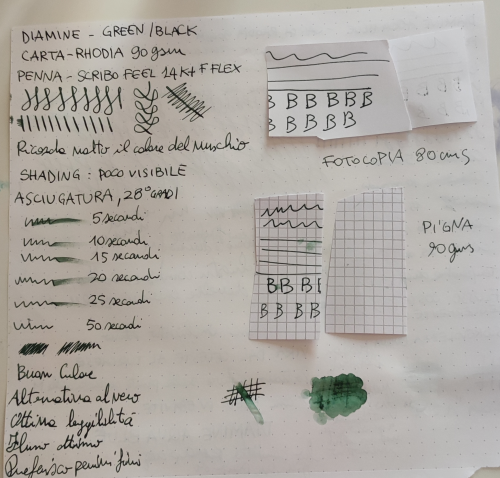 DIAMINE - GREEN/BLACK
CARTA-RHODIA 90gsm
PENNA-SCRIBO FEEL 14Kt F FLEX
Ricorda molto il colore del muschio
SHADING: POCO VISIBILE
ASCIUGATURA, 28° GRADI
5 secondi
10 secondi
15 secondi
20 secondi
25 secondi
50 secondi
Buon Colore
Alternativa al nero
Ottima leggibilità
Flusso ottimo
B B B B B B
B B B B B
FOTOCOPIA 80
BB B B
B B B B
PIGNA
90